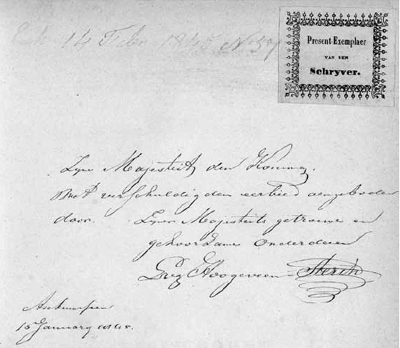 14 Febr. 18
Present-Exemplaer
VAN DEN
Schryver.
Zyne Majesteit den Koning
Met verschuldigden eerbied aengeboden
door Zyner Majesteits getrouwe en
gehoorzame Onderdaen
Hoogeveen-Sterck
Antwerpen
15 January